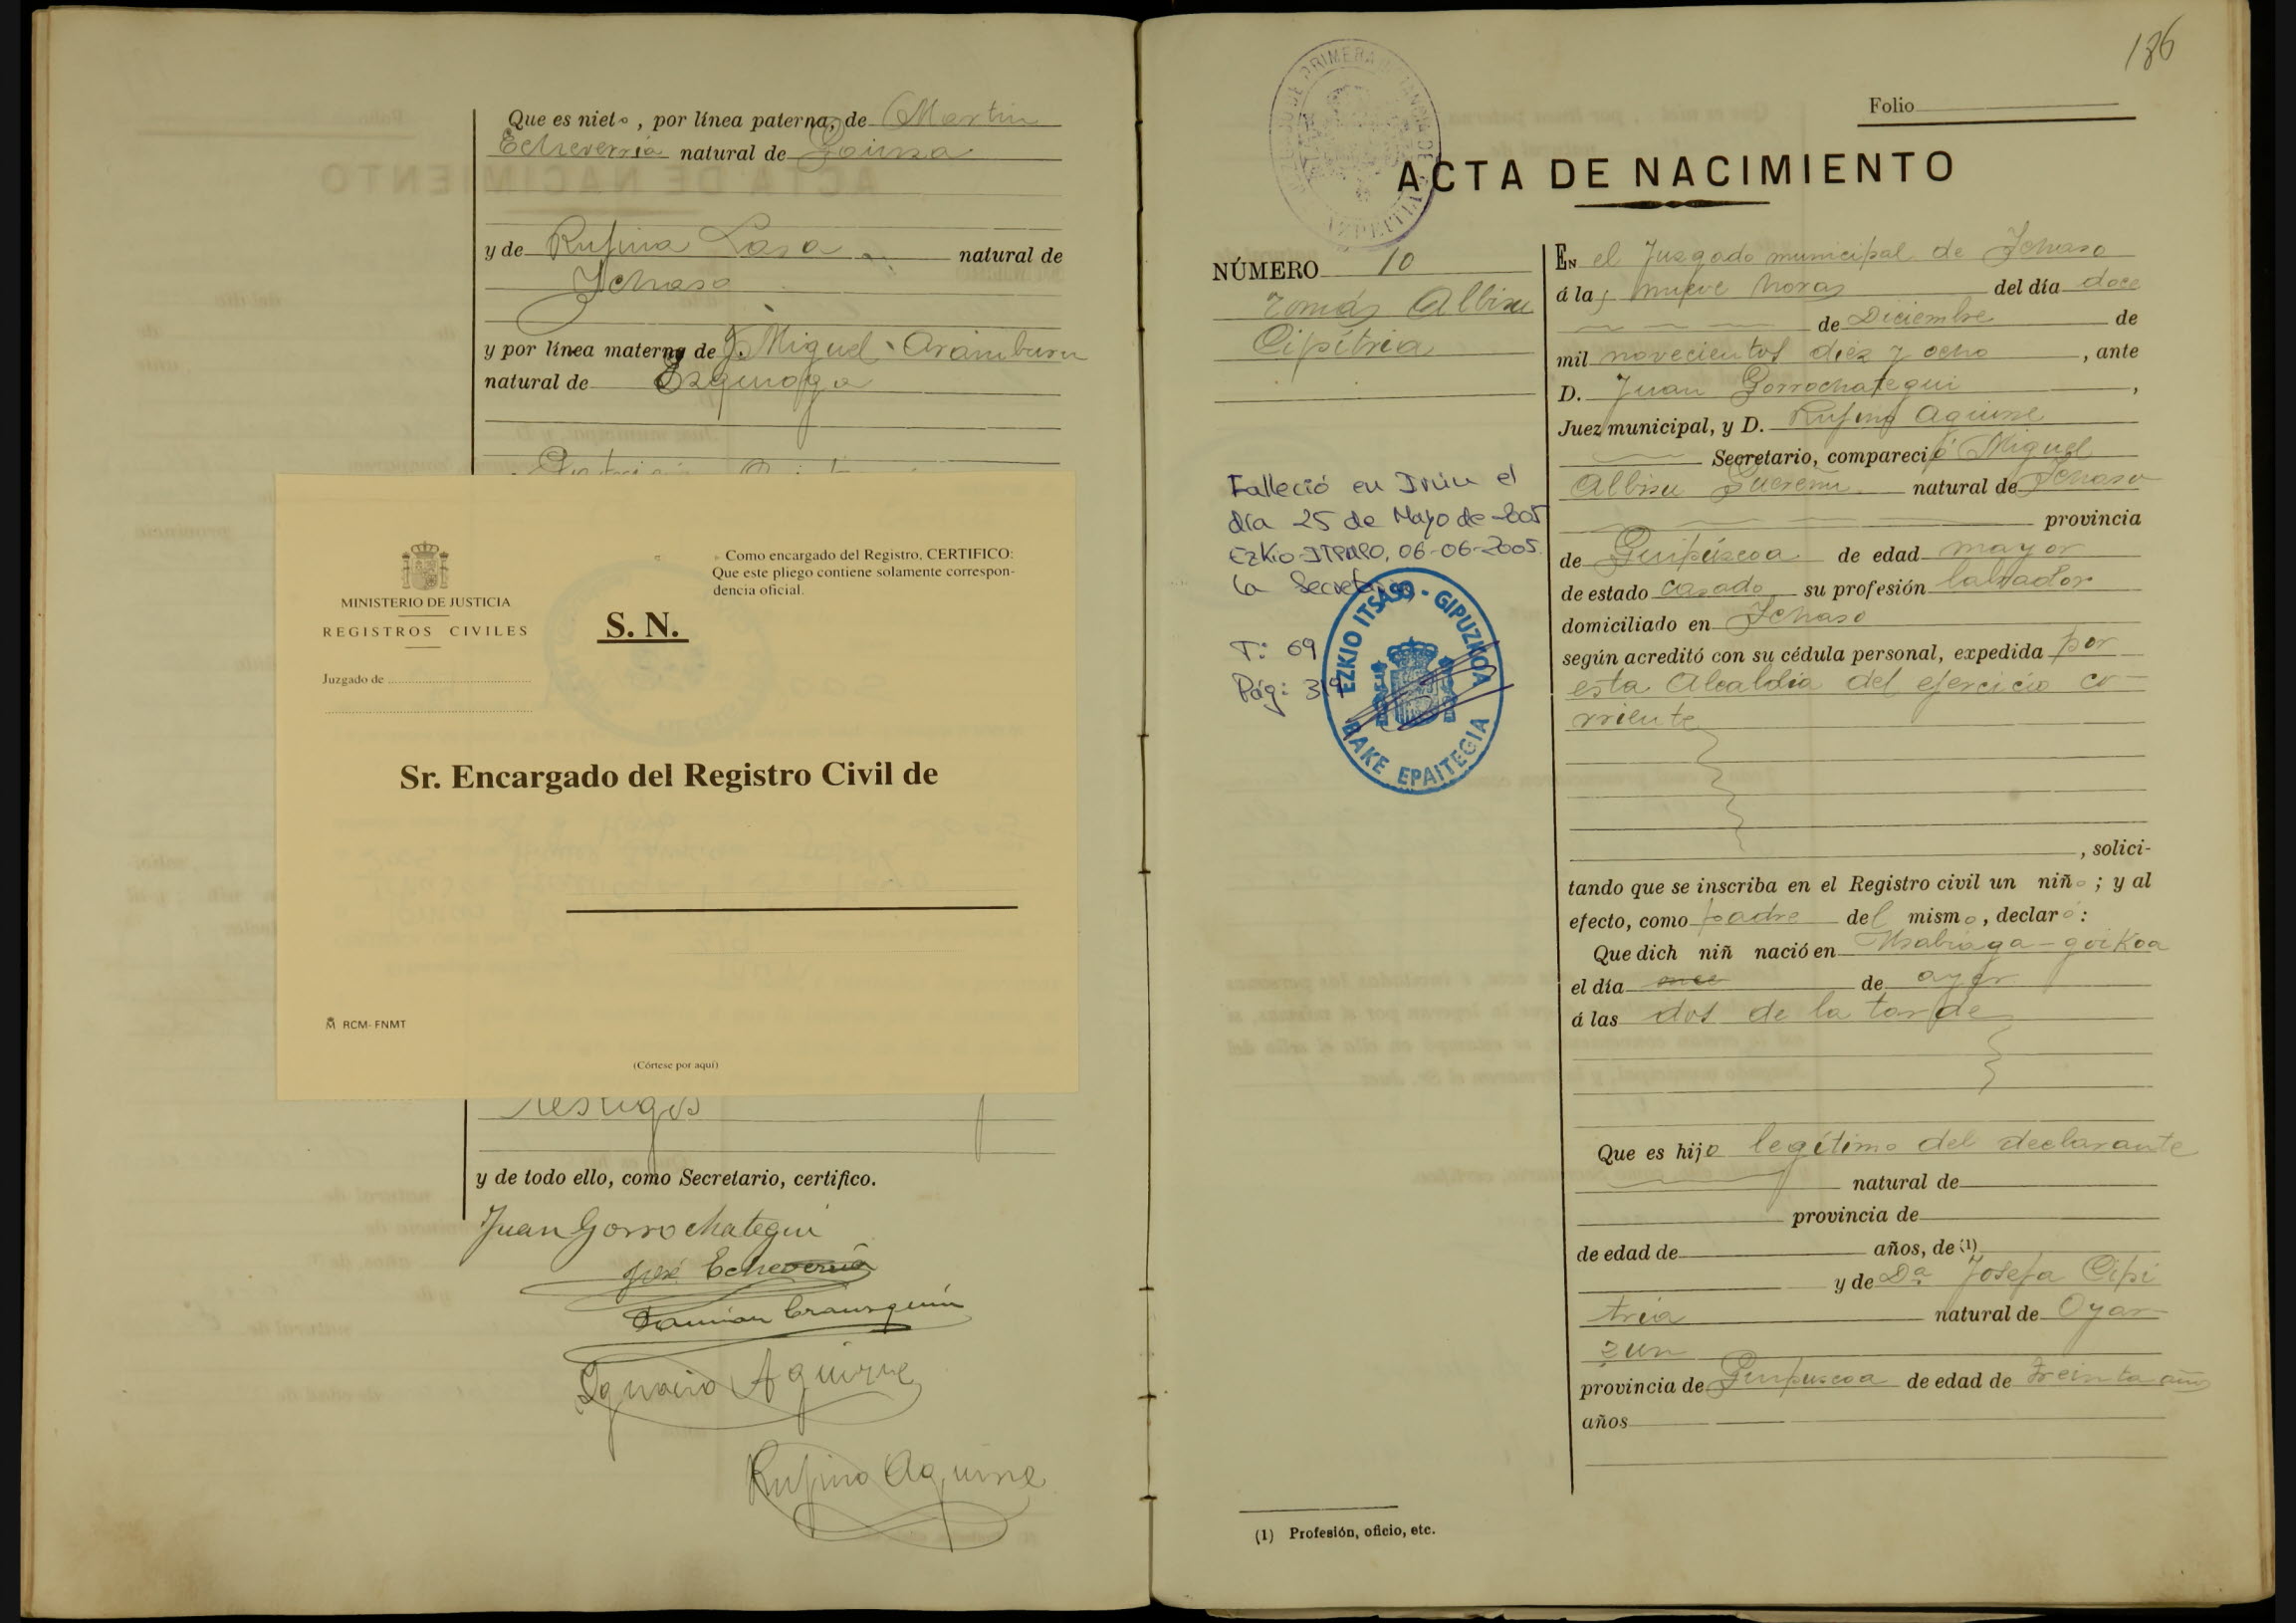 Que es nieto, por línea paterna, de Martin
Echeverria natural de Goinza
y de Rufina Lasa natural de
Ychaso
y por línea materna de J. Miguel Aramburu
natural de Ezquioga
MINISTERIO DE JUSTICIA
REGISTROS CIVILES
Juzgado de
S. N.
Como encargado del Registro, CERTIFICO:
Que este pliego contiene solamente correspon-
dencia oficial.
Sr. Encargado del Registro Civil de
RCM-FNMT
(Córtese por aquí)
testigos
y de todo ello, como Secretario, certifico.
Juan Gorrochategui
José Echeverria
Damian Urausquin
Ygnacio Aguirre
Rufino Aguirre
136
Folio
JUZGADO DE PRIMERA INSTANCIA DE
AZPEITIA
ACTA DE NACIMIENTO
NÚMERO 10
Tomás Albisu
Cipitria
Falleció en Irún el
día 25 de Mayo de 2005
Ezkio-ITSASO, 06-06-2005.
La Secretaria
T: 69
Pág: 319
EZKIO ITSASO - GIPUZKOA
BAKE EPAITEGIA
EN el Juzgado municipal de Ychaso
á las nueve horas del día doce
de Diciembre de
mil novecientos diez y ocho, ante
D. Juan Gorrochategui,
Juez municipal, y D. Rufino Aguirre
Secretario, compareció Miguel
Albisu natural de Ychaso
provincia
de Guipúzcoa de edad mayor
de estado casado su profesión labrador
domiciliado en Ychaso
según acreditó con su cédula personal, expedida por
esta Alcaldia del ejercicio co-
rriente
, solici-
tando que se inscriba en el Registro civil un niño; y al
efecto, como padre del mismo, declaró:
Que dich niñ nació en Usabiaga-goikoa
el día once de ayer
á las dos de la tarde
Que es hijo legítimo del declarante
natural de
provincia de
de edad de años, de (1)
y de Dª Josefa Cipi
tria natural de Oyar-
zun
provincia de Guipuzcoa de edad de treinta años
años
(1) Profesión, oficio, etc.